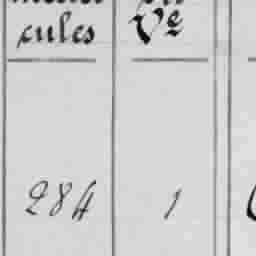 cules Ve
284 1